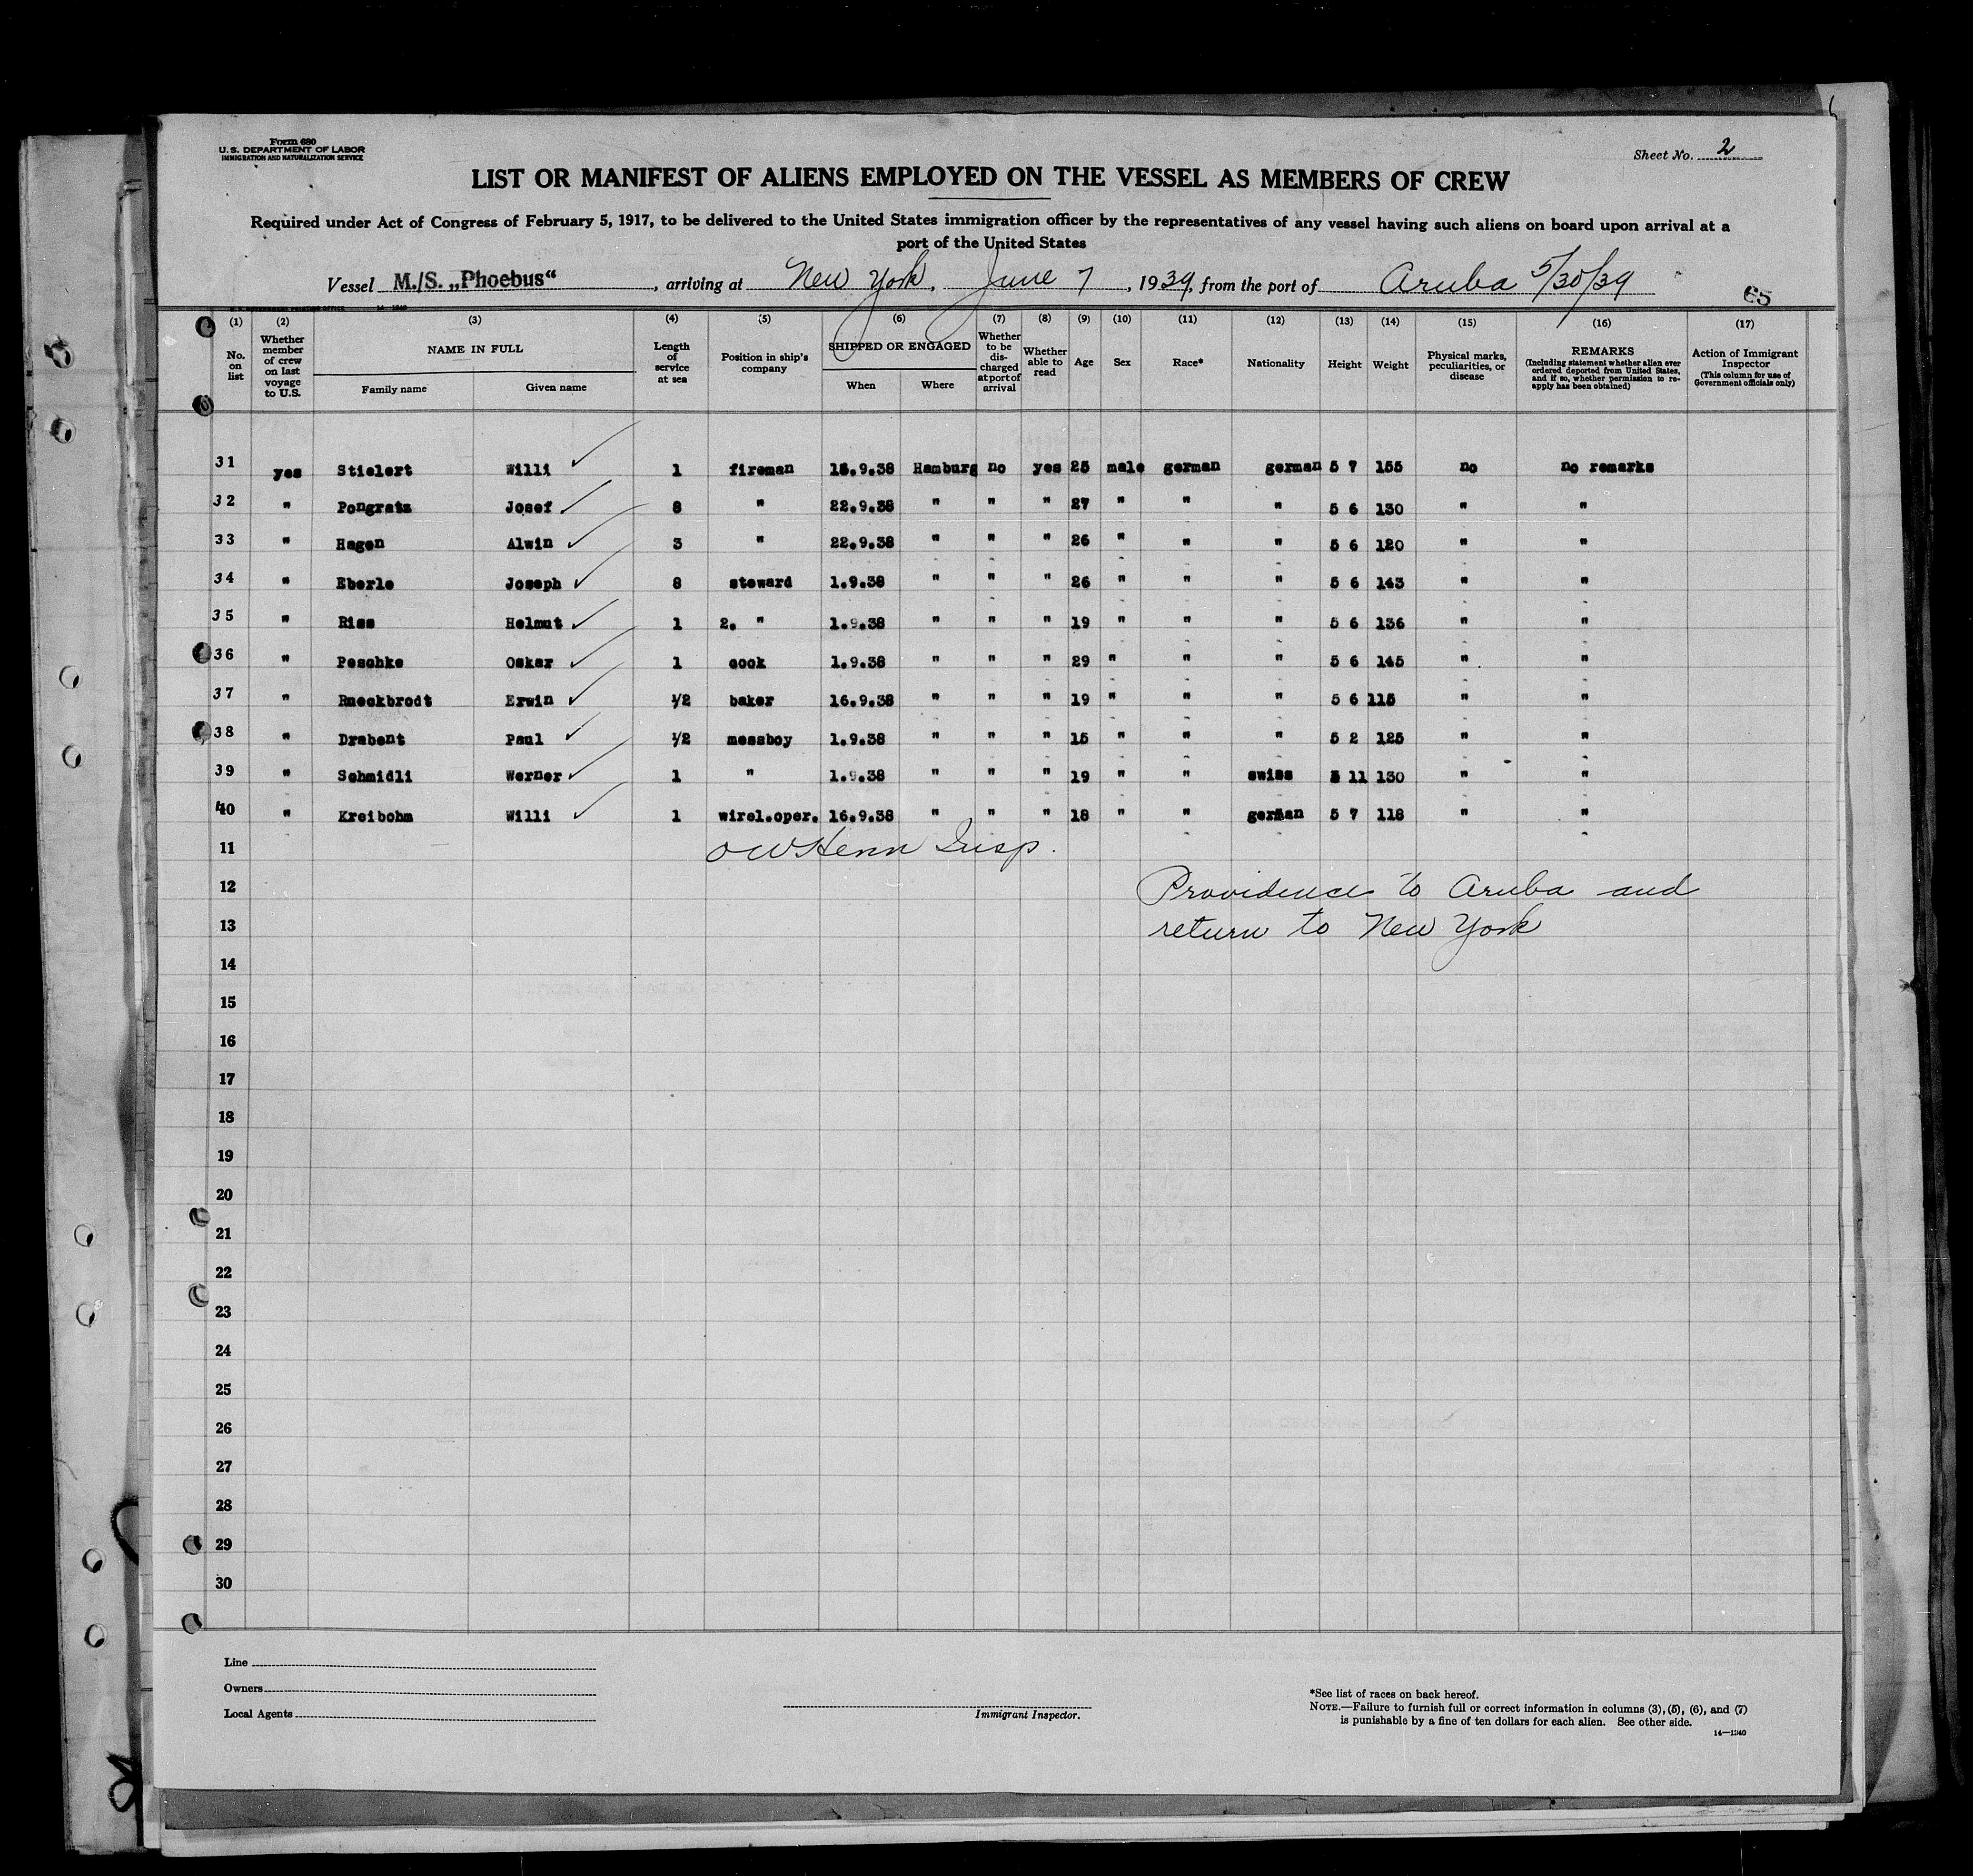 Form 680
U. S. DEPARTMENT OF LABOR
IMMIGRATION AND NATURALIZATION SERVICE
Sheet No. 2
LIST OR MANIFEST OF ALIENS EMPLOYED ON THE VESSEL AS MEMBERS OF CREW
Required under Act of Congress of February 5, 1917, to be delivered to the United States immigration officer by the representatives of any vessel having such aliens on board upon arrival at a
port of the United States
Vessel M./S. „Phoebus“, arriving at New York, June 7, 1939, from the port of Aruba 5/30/39
65
(1) (2) (3) (4) (5) (6) (7) (8) (9) (10) (11) (12) (13) (14) (15) (16) (17)
No. on list
Whether member of crew on last voyage to U.S.
NAME IN FULL
Family name Given name
Length of service at sea
Position in ship's company
SHIPPED OR ENGAGED
When Where
Whether to be discharged at port of arrival
Whether able to read
Age
Sex
Race*
Nationality
Height
Weight
Physical marks, peculiarities, or disease
REMARKS
(Including statement whether alien ever ordered deported from United States, and if so, whether permission to re-apply has been obtained)
Action of Immigrant Inspector
(This column for use of Government officials only)
31 yes Stielert Willi 1 fireman .9.38 Hamburg no yes 25 male german german 5 7 155 no no remarks
32 " Pongratz Josef 8 " 22.9.38 " " " 27 " " " 5 6 130 " "
33 " Hagen Alwin 3 " 22.9.38 " " " 26 " " " 5 6 120 " "
34 " Eberle Joseph 8 steward 1.9.38 " " " 26 " " " 5 6 143 " "
35 " Riss Helmut 1 2. " 1.9.38 " " " 19 " " " 5 6 136 " "
36 " Peschke Oskar 1 cook 1.9.38 " " " 29 " " " 5 6 145 " "
37 " Rneckbrodt Erwin 1/2 baker 16.9.38 " " " 19 " " " 5 6 115 " "
38 " Drabent Paul 1/2 messboy 1.9.38 " " " 15 " " " 5 2 125 " "
39 " Schmidli Werner 1 " 1.9.38 " " " 19 " " swiss 5 11 130 " "
40 " Kreibohm Willi 1 wirel.oper. 16.9.38 " " " 18 " " german 5 7 118 " "
11 O W Henn Insp.
12 Providence to Aruba and
13 return to New York
14
15
16
17
18
19
20
21
22
23
24
25
26
27
28
29
30
Line
Owners
Local Agents
Immigrant Inspector.
*See list of races on back hereof.
NOTE.—Failure to furnish full or correct information in columns (3), (5), (6), and (7)
is punishable by a fine of ten dollars for each alien. See other side.
14—1240